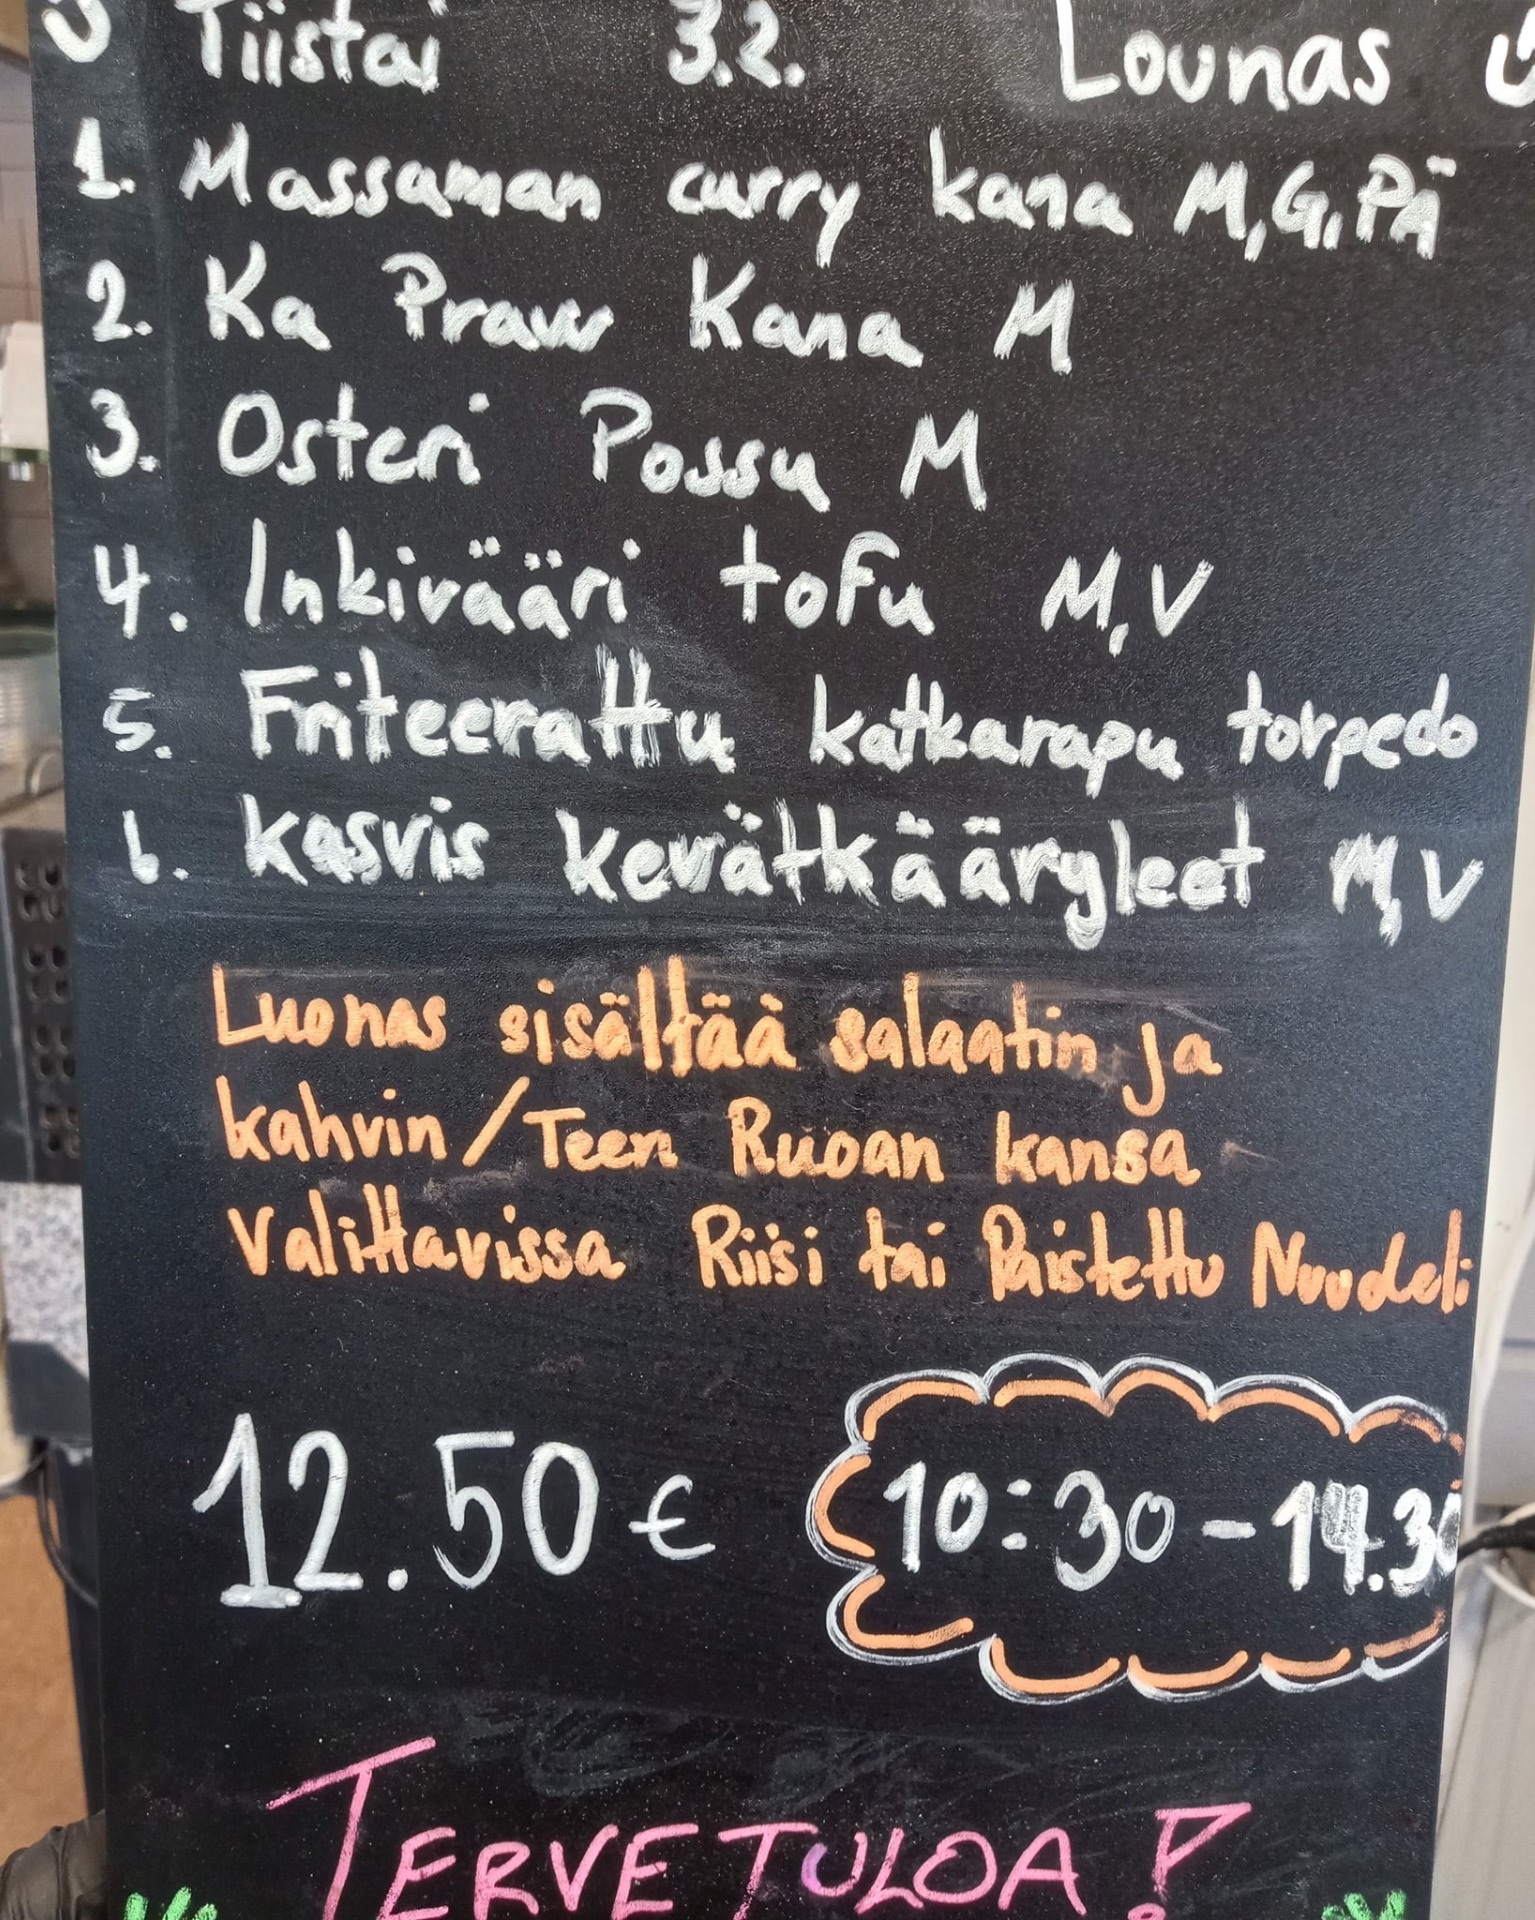 Tiistai 3.2. Lounas
1. Massaman curry kana M,G,PÄ
2. Ka Praw Kana M
3. Osteri Possu M
4. Inkivääri tofu M,V
5. Friteerattu katkarapu torpedo
6. kasvis kevätkääryleet M,V
Luonas sisältää salaatin ja
kahvin/Teen Ruoan kansa
Valittavissa Riisi tai Paistettu Nuudeli
12.50€ 10:30-14.30
TERVETULOA!